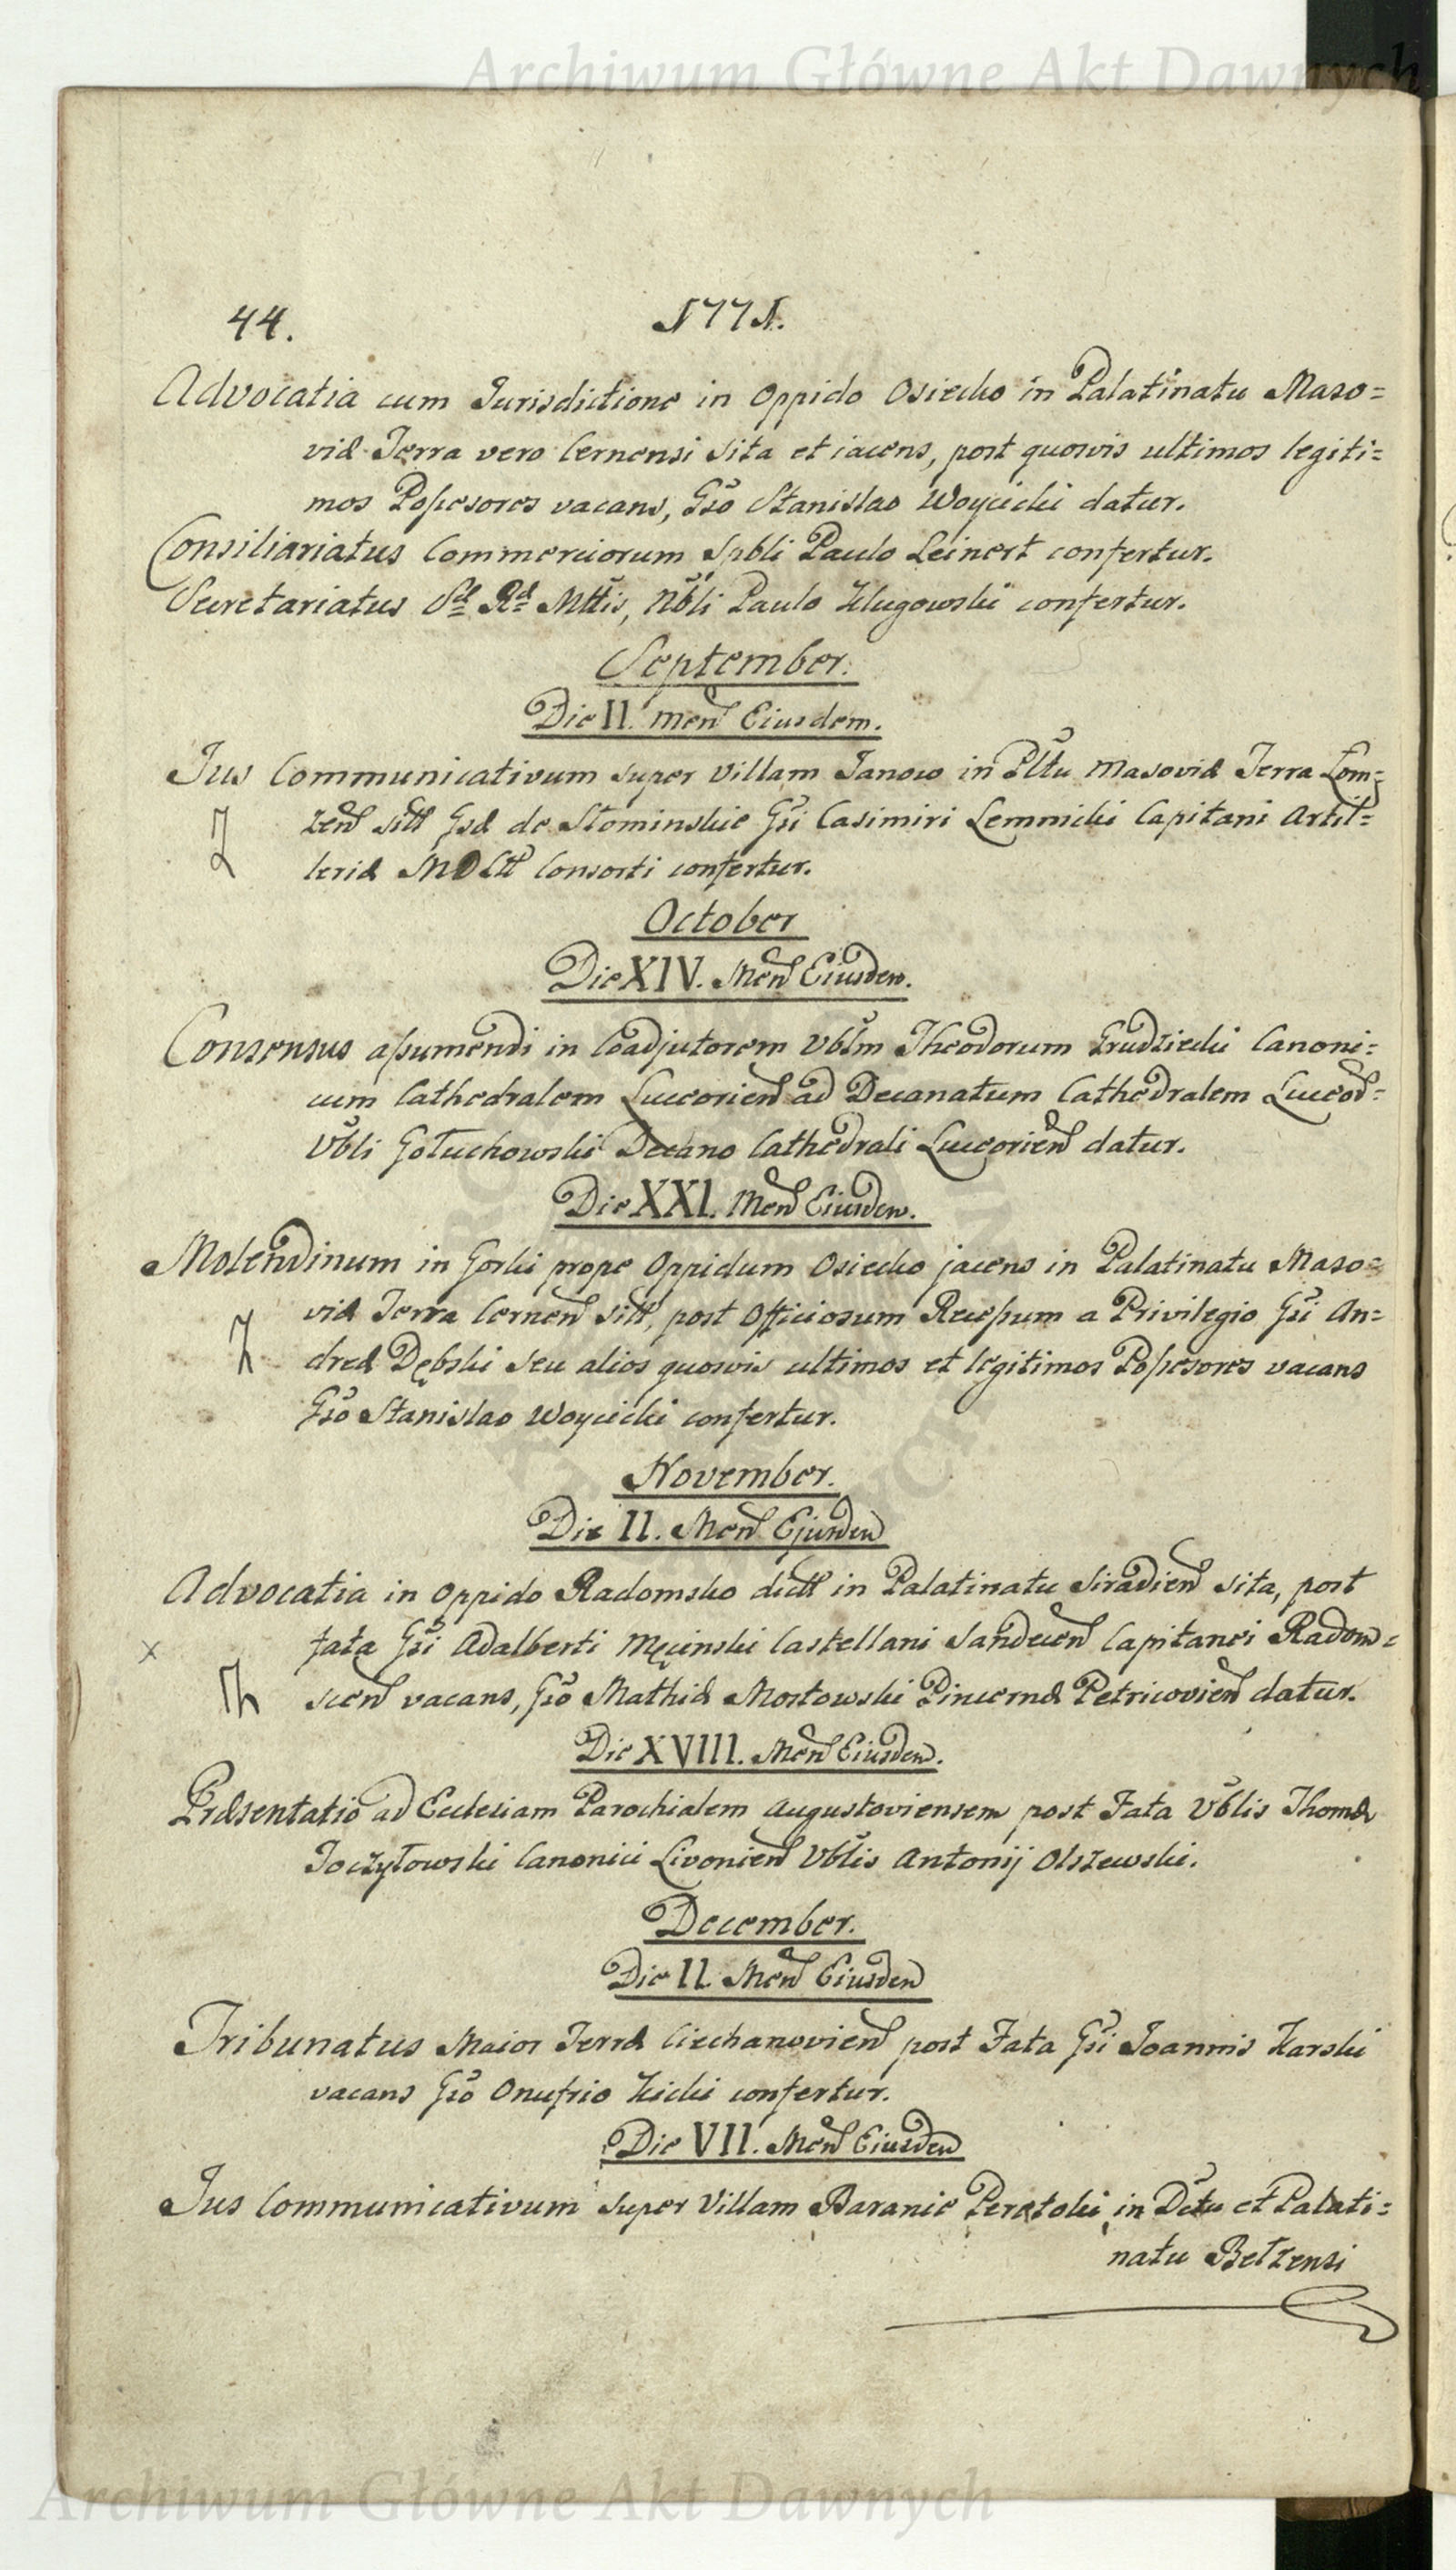 Archiwum Główne Akt Dawnych
44. 1771.
Advocatia cum Jurisdictione in Oppido Osiecko in Palatinatu Maso=
viæ Terra vero Cernensi sita et iacens, post quosvis ultimos legiti=
mos Possesores vacans, Gso Stanislao Woycicki datur.
Consiliariatus Commerciorum Spbli Paulo Leinert confertur.
Secretariatus Sæ Ræ Mttis, Nbli Paulo Klugowski confertur.
September.
Die II. Men Eiusdem.
Jus Communicativum super Villam Janow in Pltu Masoviæ Terra Lom=
zen sitt Gsæ de Slominskie Gsi Casimiri Lemnicki Capitani Artil=
leriæ M D Litt Consorti confertur.
October
Die XIV. Men Eiusdem.
Consensus assumendi in Coadjutorem Vblm Theodorum Grudzicki Canoni=
cum Cathedralem Luceorien ad Decanatum Cathedralem Luceor=
Vbli Gołuchowski Decano Cathedrali Luceorien datur.
Die XXI. Men Eiusdem.
Molendinum in Gorki prope Oppidum Osiecko jacens in Palatinatu Maso=
viæ Terra Cernen sitt, post Officiosum Recessum a Privilegio Gsi An=
dreæ Dębski seu alios quosvis ultimos et legitimos Possesores vacans
Gso Stanislao Woycicki confertur.
November.
Die II. Men Ejusdem
Advocatia in Oppido Radomsko dictt in Palatinatu Siradien sita, post
fata Gsi Adalberti Męcinski Castellani Sandecen Capitanei Radom=
scen vacans, Gso Mathiæ Mostowski Pincernæ Petricovien datur.
Die XVIII. Men Eiusdem.
Præsentatio ad Ecclesiam Parochialem Augustoviensem post Fata Vblis Thomæ
Joczyłowski Canonici Livonien Vblis Antonij Olszewski.
December.
Die II. Men Eiusdem
Tribunatus Maior Terræ Ciechanovien post Fata Gsi Joannis Karski
vacans Gso Onufrio Kicki confertur.
Die VII. Men Eiusdem
Jus Communicativum super Villam Baranie Peretoki in Dctu et Palati=
natu Bełzensi
Archiwum Główne Akt Dawnych